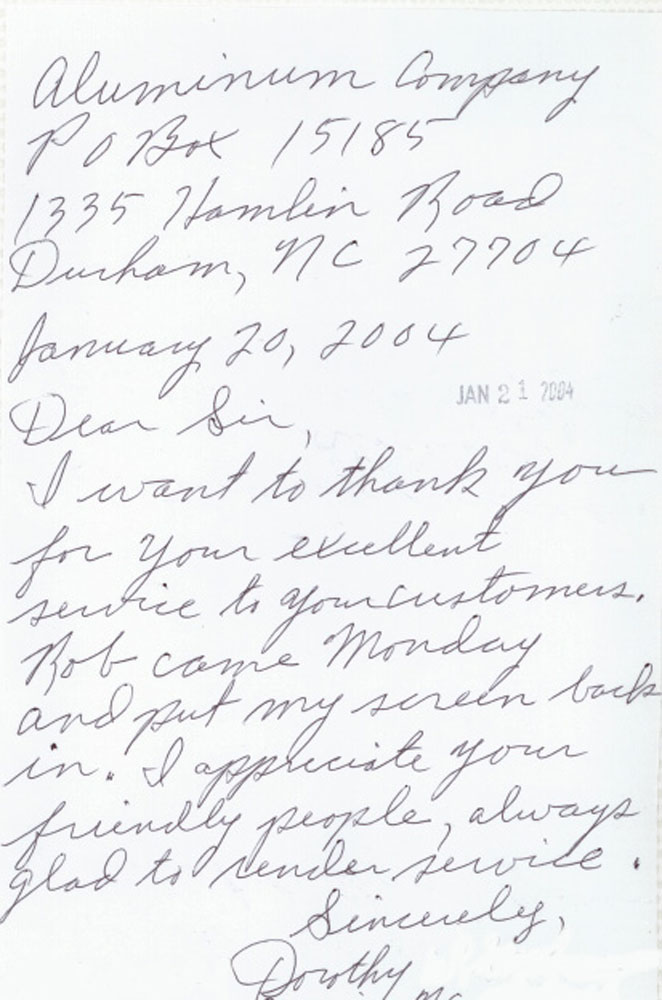 Aluminum Company
P O Box 15185
1335 Hamlin Road
Durham, NC 27704
January 20, 2004
JAN 21 2004
Dear Sir,
I want to thank you
for your excellent
service to your customers.
Rob came Monday
and put my screen back
in. I appreciate your
friendly people, always
glad to render service.
Sincerely,
Dorothy